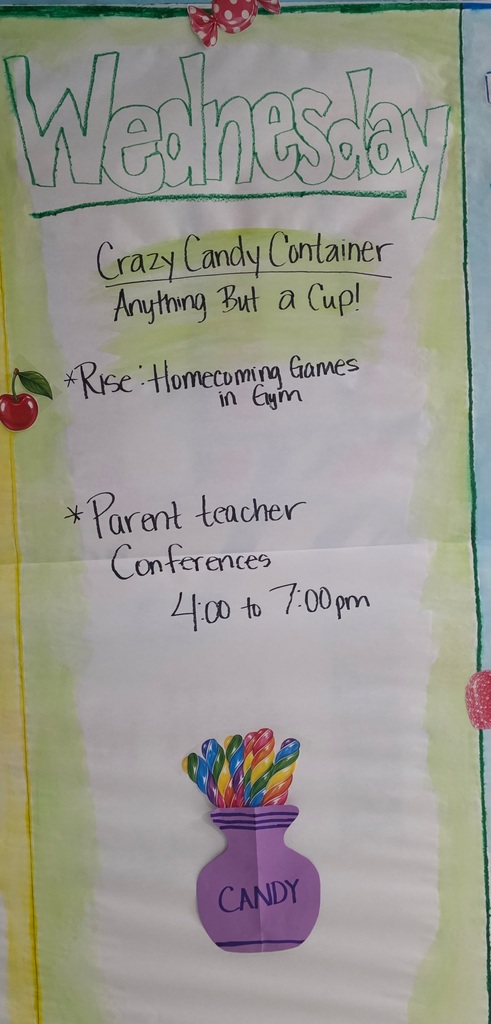 Wednesday
Crazy Candy Container
Anything But a Cup!
*Rise: Homecoming Games
in Gym
*Parent teacher
Conferences
4:00 to 7:00pm
CANDY